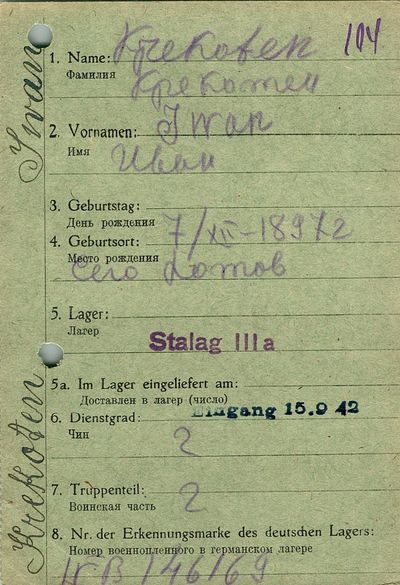 104
1. Name: Krekoten
Фамилия Крекотен
2. Vornamen: Iwan
Имя Иван
3. Geburtstag:
День рождения 7/XII-1897 г
4. Geburtsort:
Место рождения
Село Котов
5. Lager:
Лагер
Stalag IIIa
5a. Im Lager eingeliefert am:
Доставлен в лагер (число)
Eingang 15.9 42
6. Dienstgrad:
Чин 2
7. Truppenteil:
Воинская часть 2
8. Nr. der Erkennungsmarke des deutschen Lagers:
Номер военнопленного в германском лагере
Iwan
Krekoten